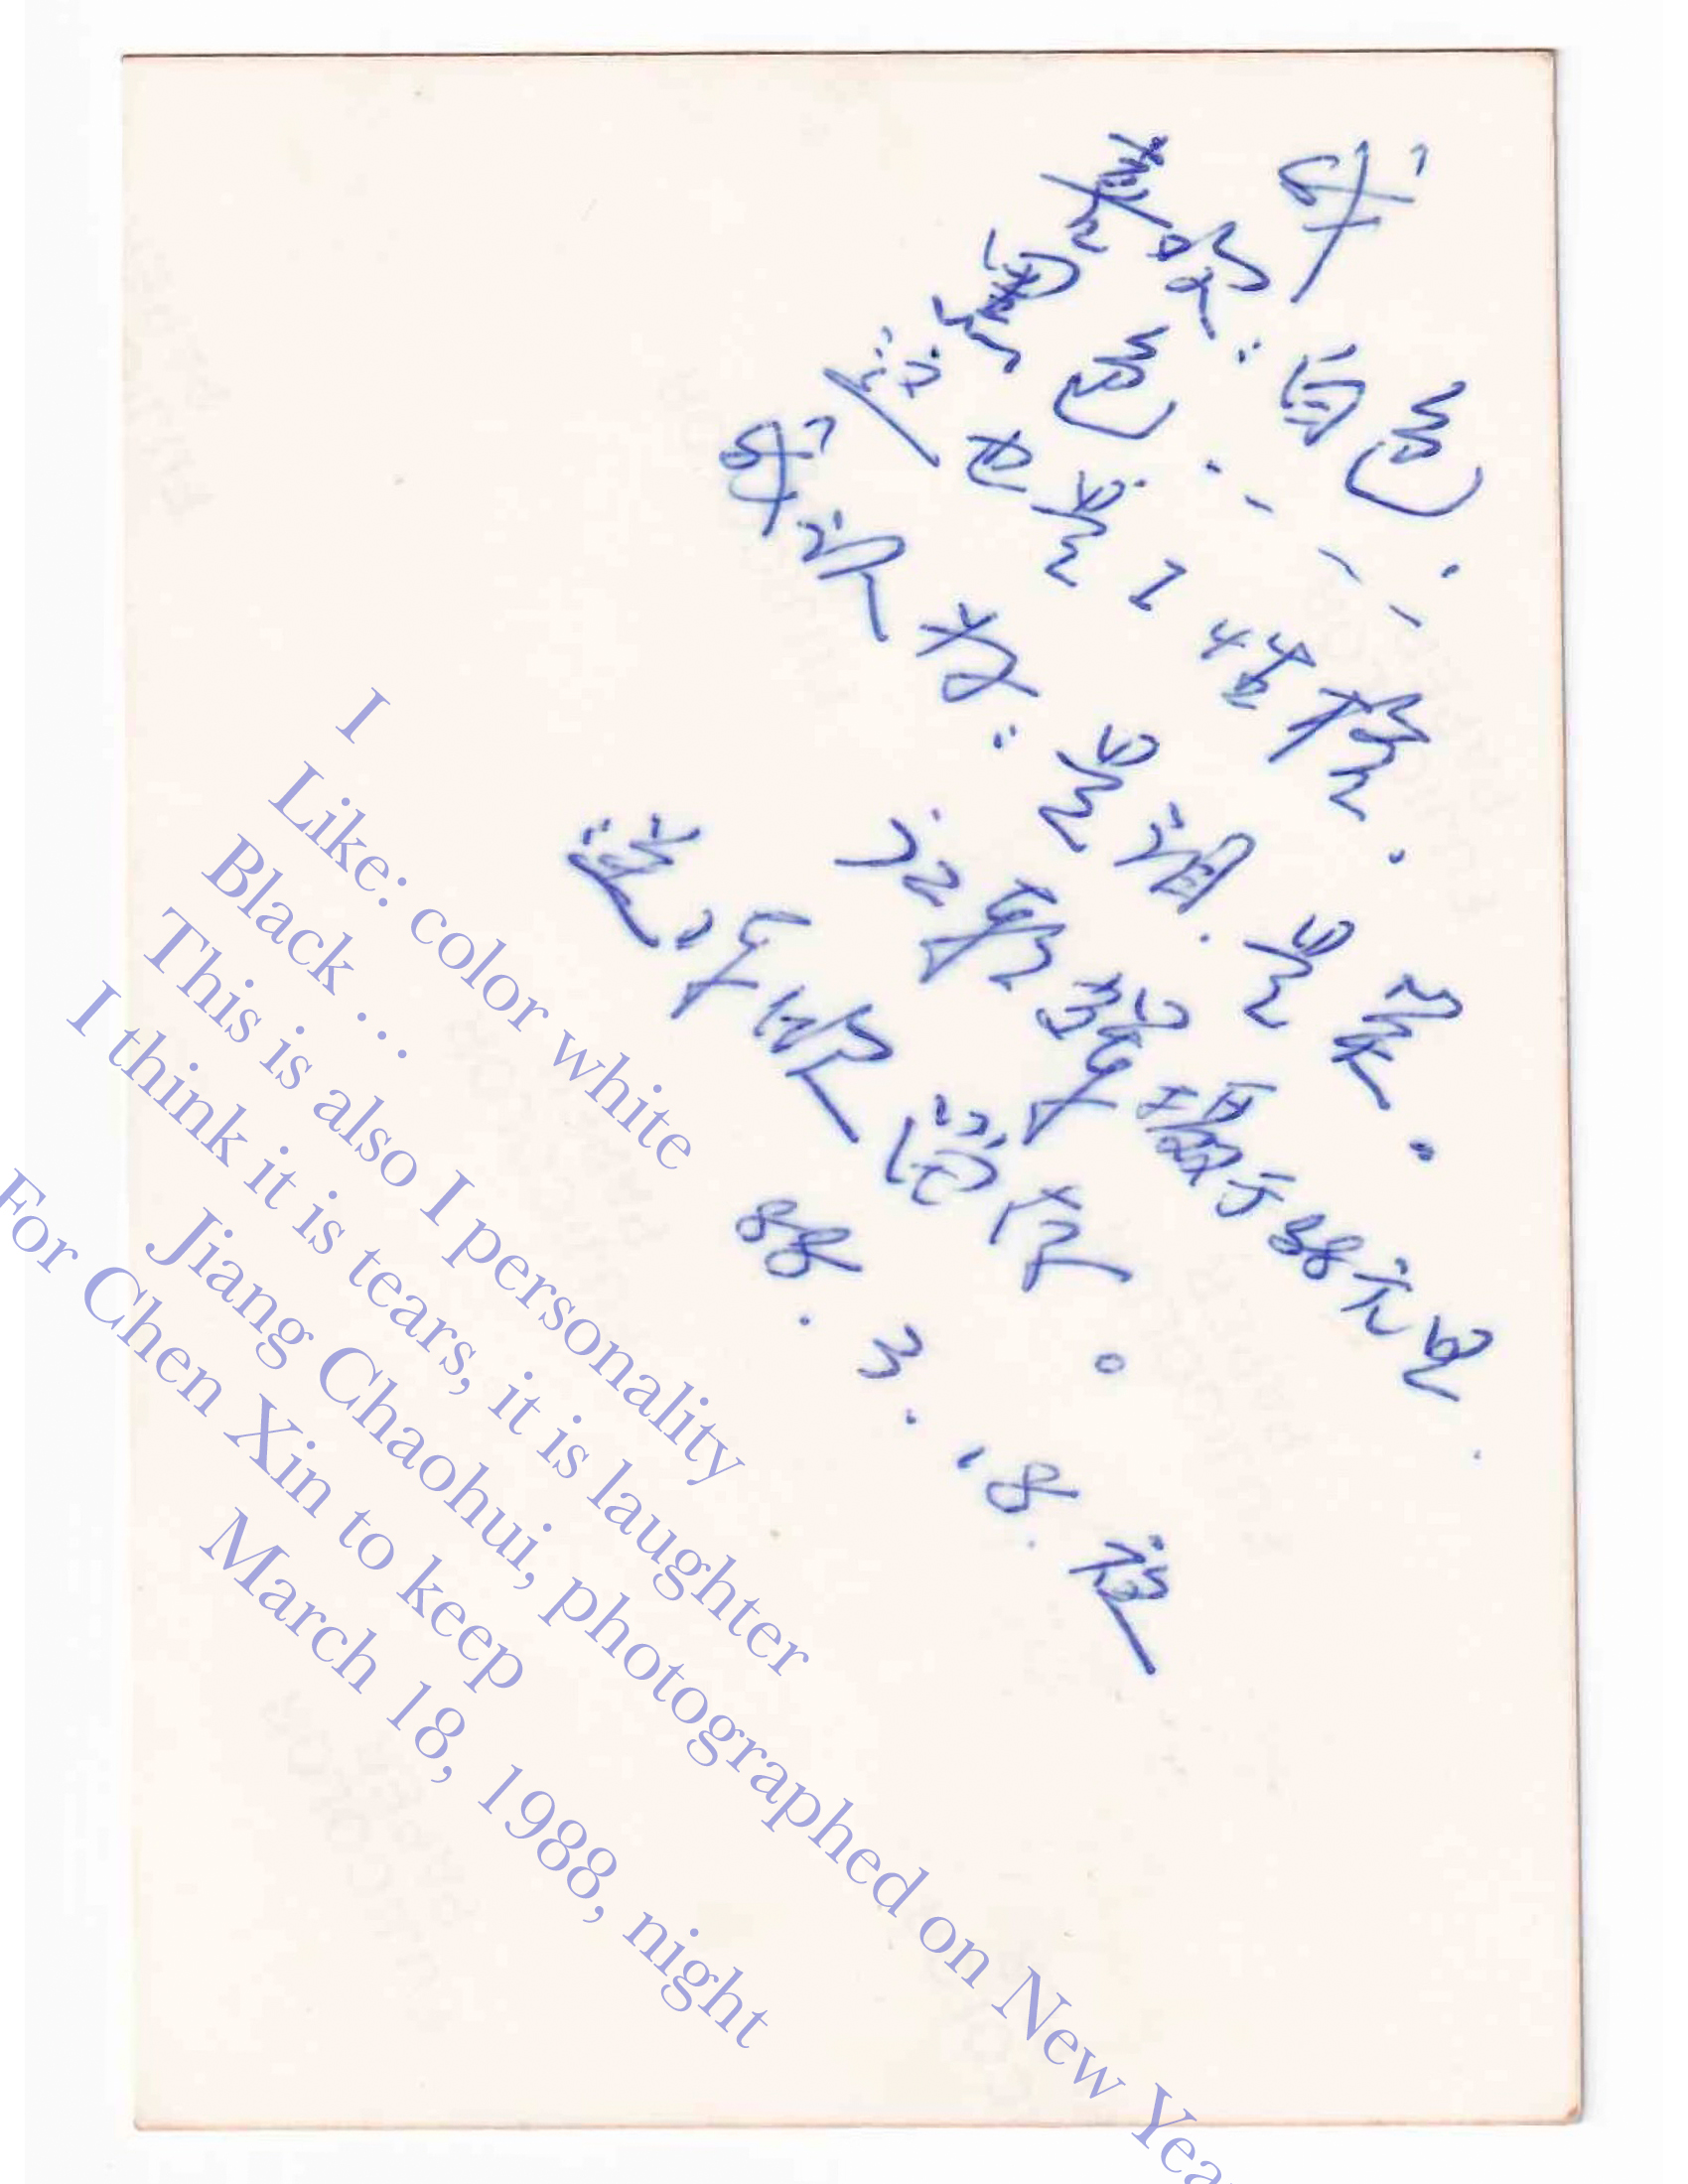 我
喜欢：白色……
黑色……
这也是I 性格.
我认为：是泪.是笑.
江朝辉摄于88元旦.
送：辰欣留存。
88.3.18.夜
I
Like: color white
Black ...
This is also I personality
I think it is tears, it is laughter
Jiang Chaohui, photographed on New Yea
For Chen Xin to keep
March 18, 1988, night